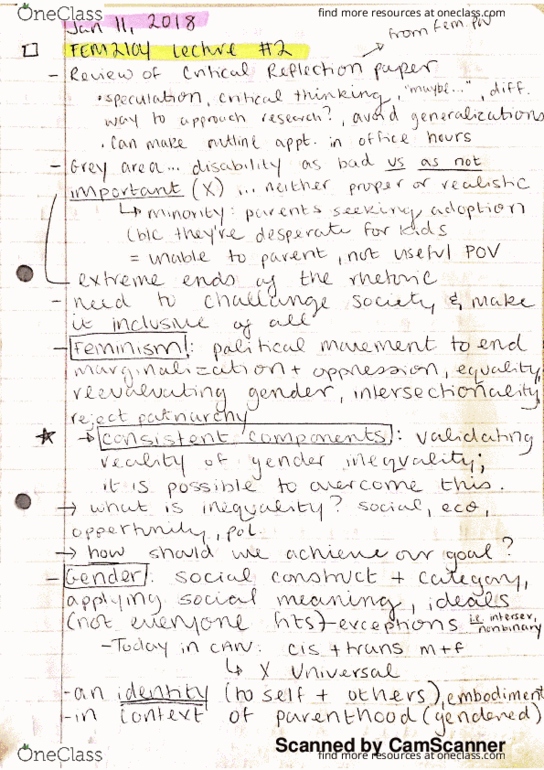 OneClass
find more resources at oneclass.com
Jan 11, 2018
from fem pov
FEM2104 Lecture #2
- Review of Critical Reflection paper
• speculation, critical thinking, "maybe...", diff.
way to approach research?, avoid generalizations
• can make outline appt. in office hours
- Grey area... disability as bad vs as not
important (X) ... neither proper or realistic
↳ minority: parents seeking adoption
(b/c they're desperate for kids
= unable to parent, not useful POV
extreme ends of the rhetoric
- need to challange society & make
it inclusive of all
- Feminism: political movement to end
marginalization + oppression, equality,
reevaluating gender, intersectionality,
reject patriarchy
★ → consistent components: validating
reality of gender inequality;
it is possible to overcome this.
→ what is inequality? social, eco,
oppertunity, pol.
→ how should we achieve our goal?
- Gender: social construct + category,
applying social meaning, ideals
(not everyone fits) - exceptions i.e. intersex, nonbinary
- Today in CAN: cis + trans m + f
↳ X Universal
- an identity (to self + others), embodiment
- in context of parenthood (gendered)
Scanned by CamScanner
OneClass
find more resources at oneclass.com